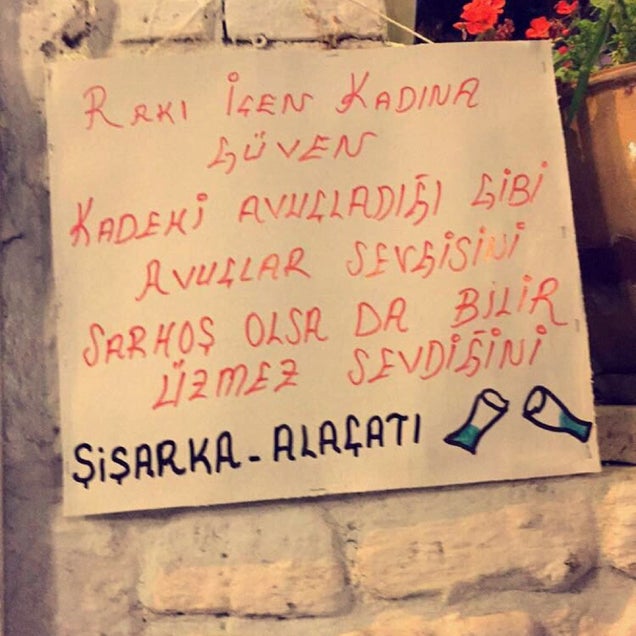 RAKI İÇEN KADINA
GÜVEN
KADEHİ AVUÇLADIĞI GİBİ
AVUÇLAR SEVGİSİNİ
SARHOŞ OLSA DA BİLİR
ÜZMEZ SEVDİĞİNİ
ŞİŞARKA-ALAÇATI